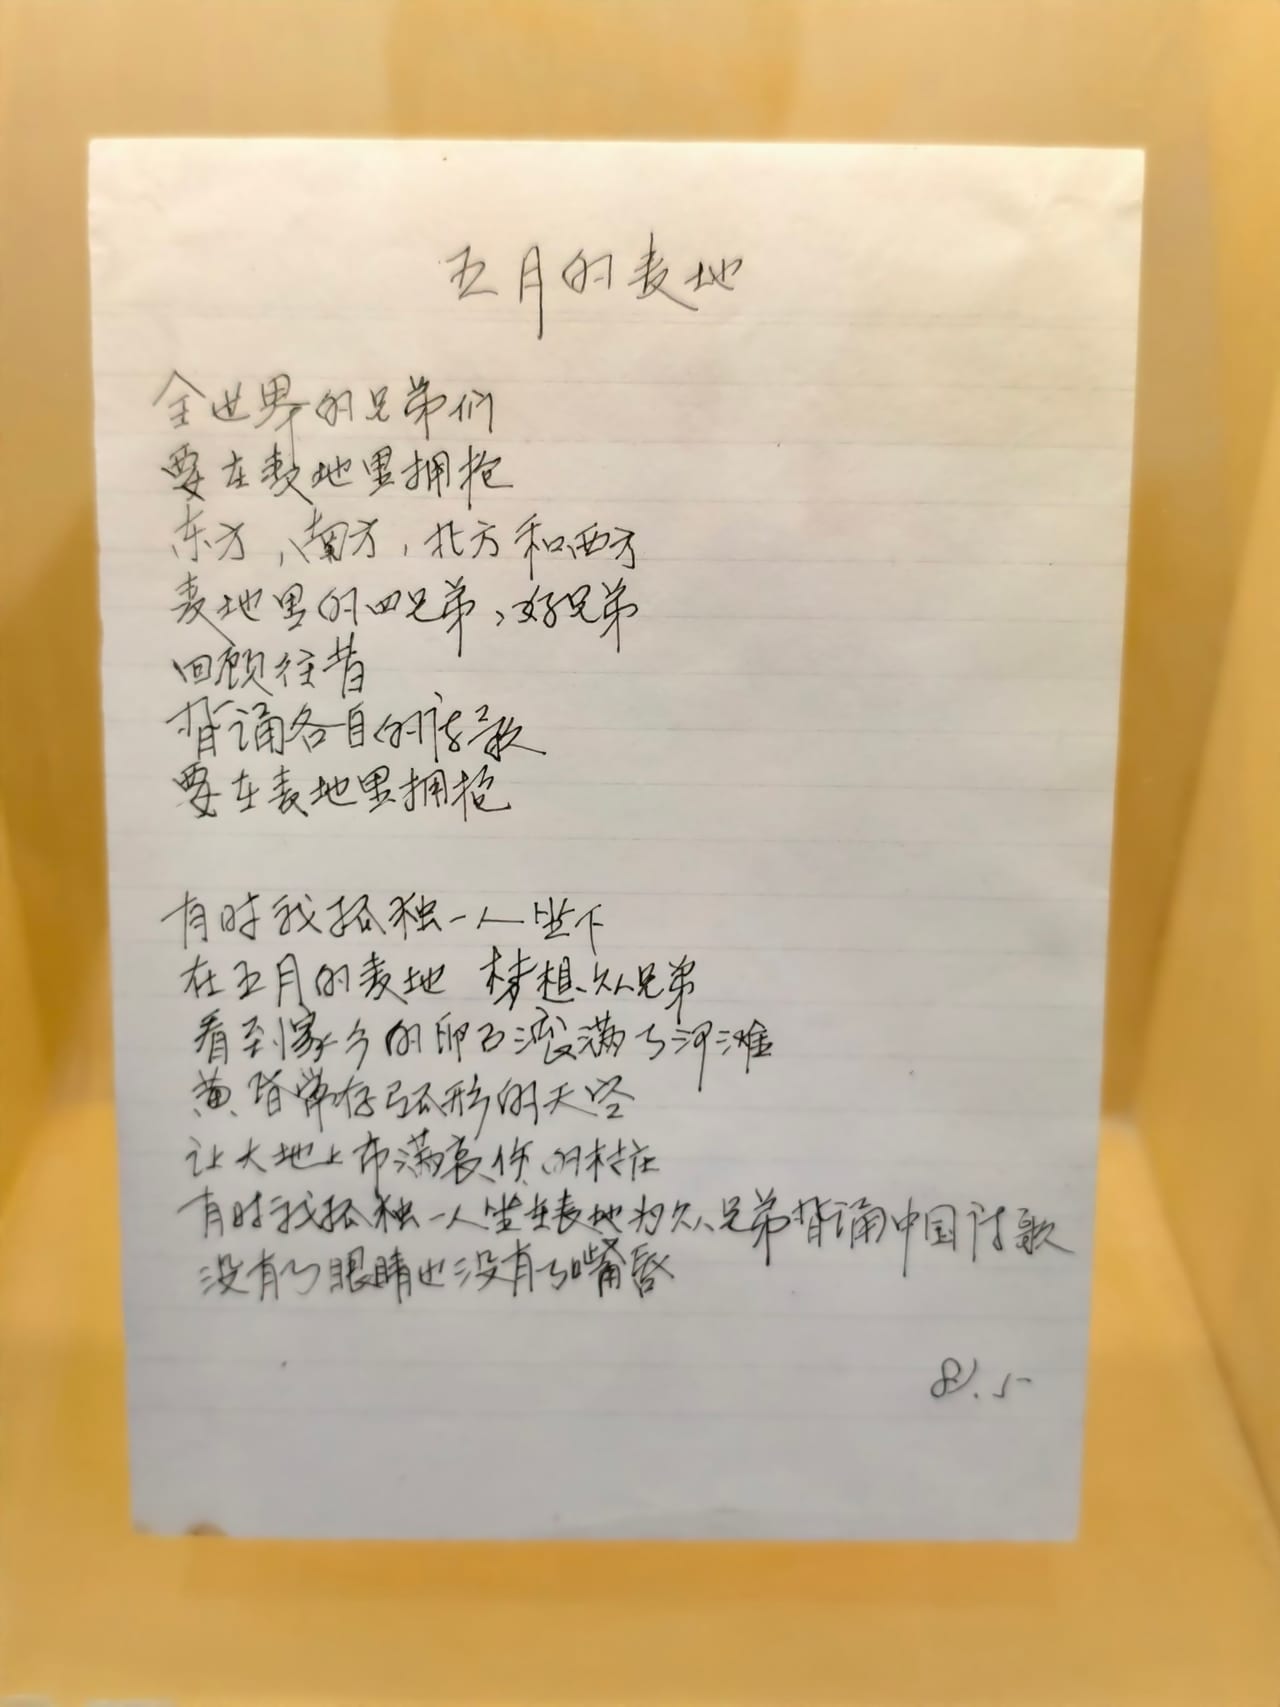 五月的麦地
全世界的兄弟们
要在麦地里拥抱
东方，南方，北方和西方
麦地里的四兄弟，好兄弟
回顾往昔
背诵各自的诗歌
要在麦地里拥抱
有时我孤独一人坐下
在五月的麦地 梦想众兄弟
看到家乡的卵石滚满了河滩
黄昏常存弧形的天空
让大地上布满哀伤的村庄
有时我孤独一人坐在麦地为众兄弟背诵中国诗歌
没有了眼睛也没有了嘴唇